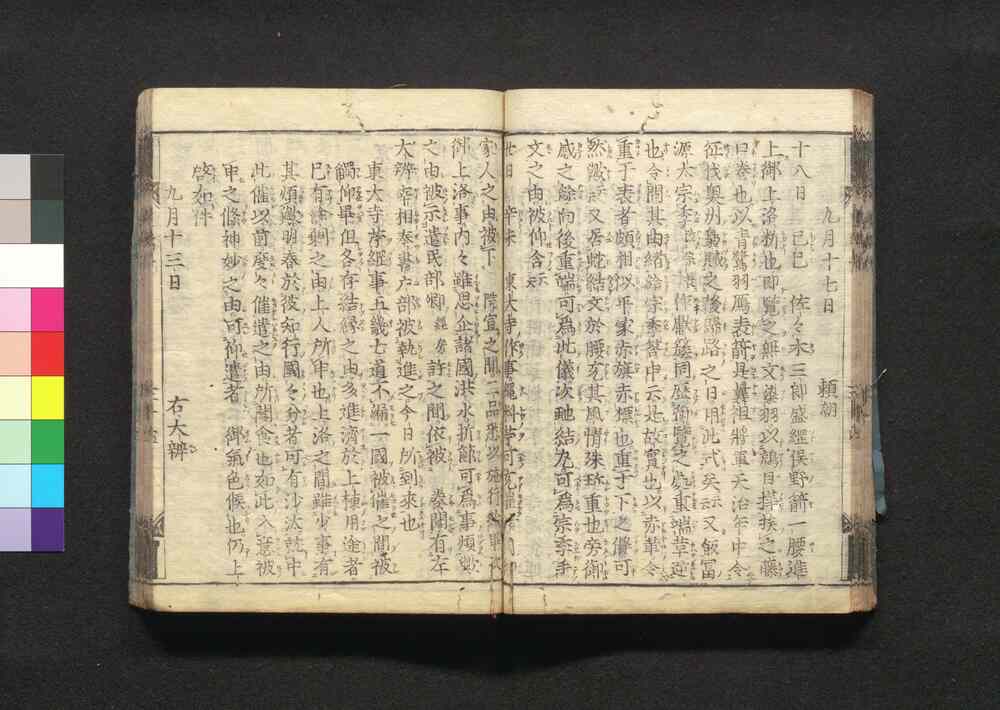 九月十七日　　頼朝
十八日　己巳　佐々木三郎盛經俣野箭一腰進
上御上洛料也即覽之無文染羽以鶴目樺挾之藤
口卷也以青鷺羽爲表箭具曩祖將軍天治年中令
征伐奥州梟賊之後歸路之日用此式矣云又飯冨
源太宗季
也令問其由緒給宗季答申云是故實也以赤革令
重于表者頗相似平家赤旗赤標也重于下之儀可
然歟云又居蛇結文於腰充其風情殊珍重也旁御
感之餘向後重端可爲此儀次虵結丸可爲宗季手
文之由被仰含云
廿日　辛未　東大寺作事繩料苧可
家人之由被下　院宣之間二品悉以施行
御上洛事内々雖思企諸國洪水折節可爲事煩歟
之由被示遣民部卿經房許之間依被　奏聞有左
大辨宰相奉書戸部被執進之今日所到來也
東大寺苧綱事五畿七道不漏一國被催之間被
觸仰畢但各存結縁之由多進濟於上棟用途者
已有餘剰之由上人所申也上洛之間雖少事有
其煩歟羽奉於彼知行國々分者可有沙汰歟中
此催以前度々催遣之由所聞食也如此入意被
申之條神妙之由可仰遣者　御氣色候也仍上
啓如件
九月十三日　　右大辨